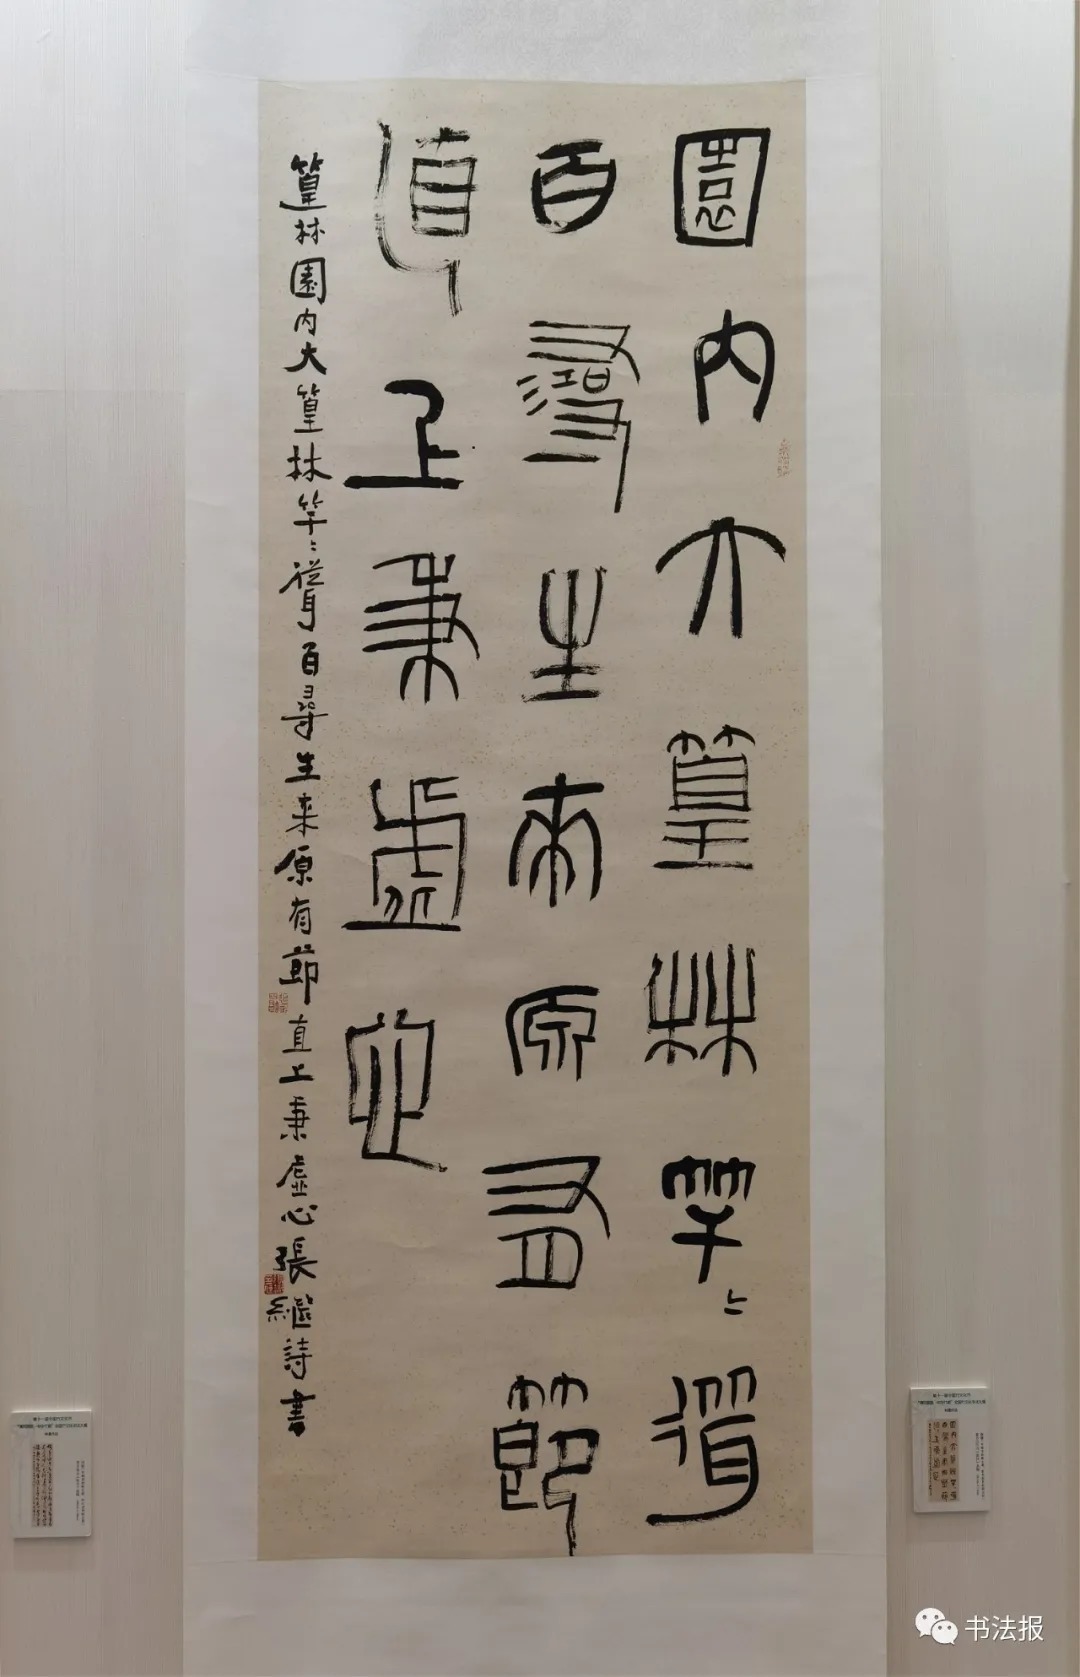 園内大篁林竿〻聳
百尋生來原有節
直上秉虛心
篁林園内大篁林竿〻聳百尋生来原有節直上秉虛心張繼詩書
书法报